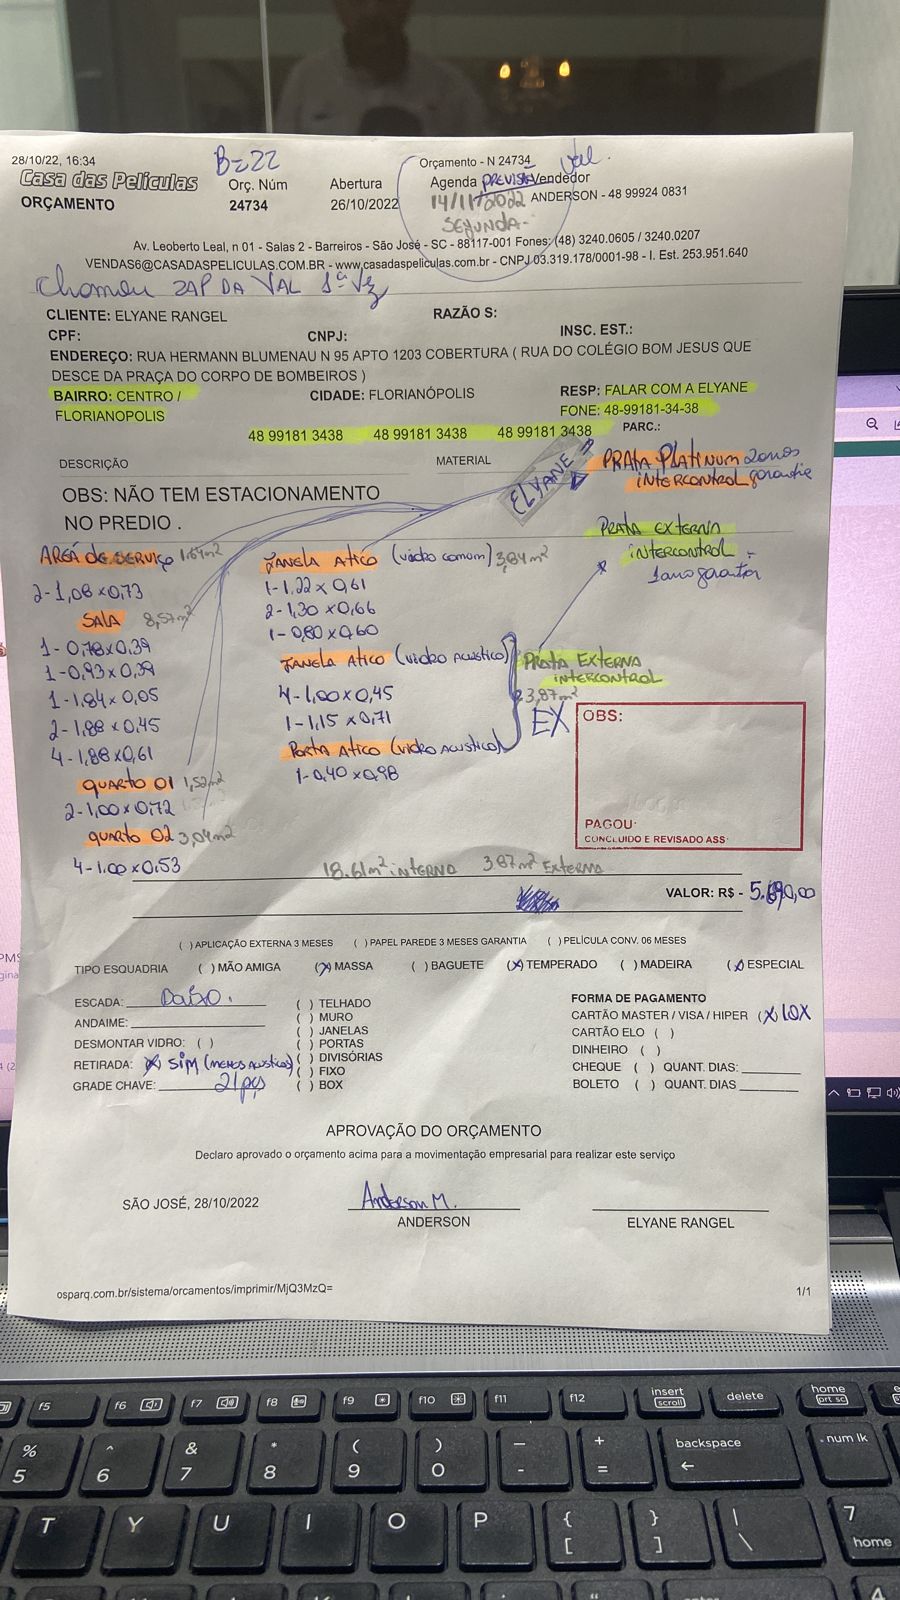 28/10/22, 16:34
B=22
Orçamento - N 24734
Val.
Casa das Películas
Orç. Núm
Abertura
Agenda PREVISÃO Vendedor
ORÇAMENTO
24734
26/10/2022
14/11/2022
ANDERSON - 48 99924 0831
SEGUNDA-
Av. Leoberto Leal, n 01 - Salas 2 - Barreiros - São José - SC - 88117-001 Fones: (48) 3240.0605 / 3240.0207
VENDAS6@CASADASPELICULAS.COM.BR - www.casadaspeliculas.com.br - CNPJ 03.319.178/0001-98 - I. Est. 253.951.640
Chamou ZAP DA VAL 1ª Vez
CLIENTE: ELYANE RANGEL
RAZÃO S:
CPF:
CNPJ:
INSC. EST.:
ENDEREÇO: RUA HERMANN BLUMENAU N 95 APTO 1203 COBERTURA ( RUA DO COLÉGIO BOM JESUS QUE
DESCE DA PRAÇA DO CORPO DE BOMBEIROS )
BAIRRO: CENTRO /
FLORIANOPOLIS
CIDADE: FLORIANÓPOLIS
RESP: FALAR COM A ELYANE
FONE: 48-99181-34-38
48 99181 3438 48 99181 3438 48 99181 3438
PARC.:
DESCRIÇÃO
MATERIAL
ELYANE
PRATA PLATINUM 2 anos
INTERCONTROL garantia
OBS: NÃO TEM ESTACIONAMENTO
NO PREDIO .
PRATA EXTERNA
INTERCONTROL -
1 ano garantia
AREÁ DE SERVIÇO
2-1,08x0,73
SALA 8,57m²
1-0,78x0,39
1-0,93x0,39
1-1,84x0,05
2-1,88x0,45
4-1,88x0,61
QUARTO 01 1,52m²
2-1,00x0,72
QUARTO 02 3,04m²
4-1.00x0,53
JANELA ATICO (vidro comum) 3,84m²
1-1,22x0,61
2-1,30x0,66
1-0,80x0,60
JANELA ATICO (VIDRO ACUSTICO)
4-1,00x0,45
1-1,15x0,71
PORTA ATICO (VIDRO ACUSTICO)
1-0,40x0,98
PRATA EXTERNA
INTERCONTROL
3,87m²
EX
OBS:
PAGOU:
CONCLUIDO E REVISADO ASS:
18.61m² INTERNO 3.87m² EXTERNA
VALOR: R$ - 5.690,00
( ) APLICAÇÃO EXTERNA 3 MESES ( ) PAPEL PAREDE 3 MESES GARANTIA ( ) PELÍCULA CONV. 06 MESES
TIPO ESQUADRIA ( ) MÃO AMIGA (X) MASSA ( ) BAGUETE (X) TEMPERADO ( ) MADEIRA (X) ESPECIAL
ESCADA: BAIXO.
ANDAIME:
DESMONTAR VIDRO: ( )
RETIRADA: X SIM (MENOS ACUSTICO)
GRADE CHAVE: 21 pçs
( ) TELHADO
( ) MURO
( ) JANELAS
( ) PORTAS
( ) DIVISÓRIAS
( ) FIXO
( ) BOX
FORMA DE PAGAMENTO
CARTÃO MASTER / VISA / HIPER (X) 10X
CARTÃO ELO ( )
DINHEIRO ( )
CHEQUE ( ) QUANT. DIAS:
BOLETO ( ) QUANT. DIAS
APROVAÇÃO DO ORÇAMENTO
Declaro aprovado o orçamento acima para a movimentação empresarial para realizar este serviço
SÃO JOSÉ, 28/10/2022
Anderson M.
ANDERSON
ELYANE RANGEL
osparq.com.br/sistema/orcamentos/imprimir/MjQ3MzQ=
1/1
f5 f6 f7 f8 f9 f10 f11 f12 insert delete home
scroll prt sc
% ^ & * ( ) _ + backspace num lk
5 6 7 8 9 0 - =
T Y U I O P { } | 7
[ ] \ home